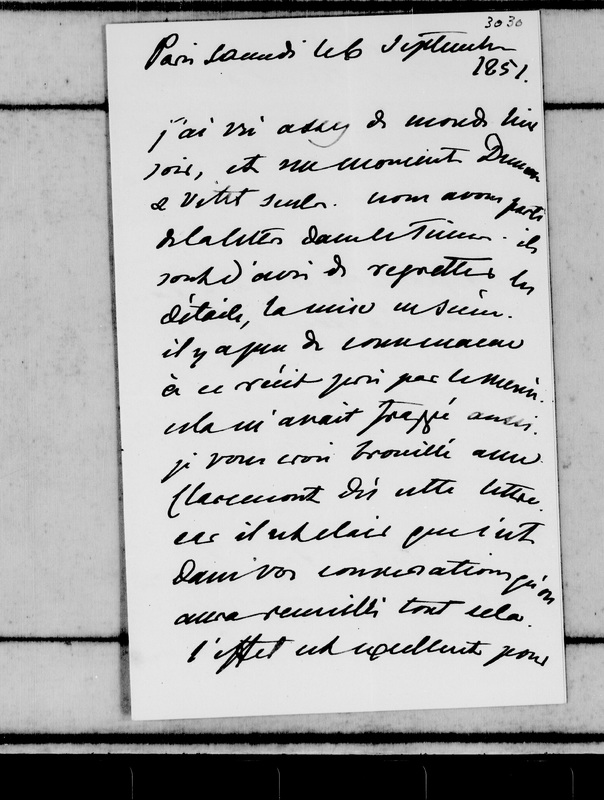 3030
Paris Samedi le 6 Septembre
1851.
j'ai vu assez de monde hier
soir, et un moment Dumon
& Vitet seuls. nous avons parlé
de la lettre dans le Times. ils
sont d'avis de regretter les
détails, la mise en scène.
il y a peu de convenance
à ce récit pris par le menu.
cela m'avait frappé aussi.
je vous crois brouillé avec
Claremont dès cette lettre.
car il est clair que c'est
dans vos conversations qu'on
aura recueilli tout cela.
l'effet est excellent pour